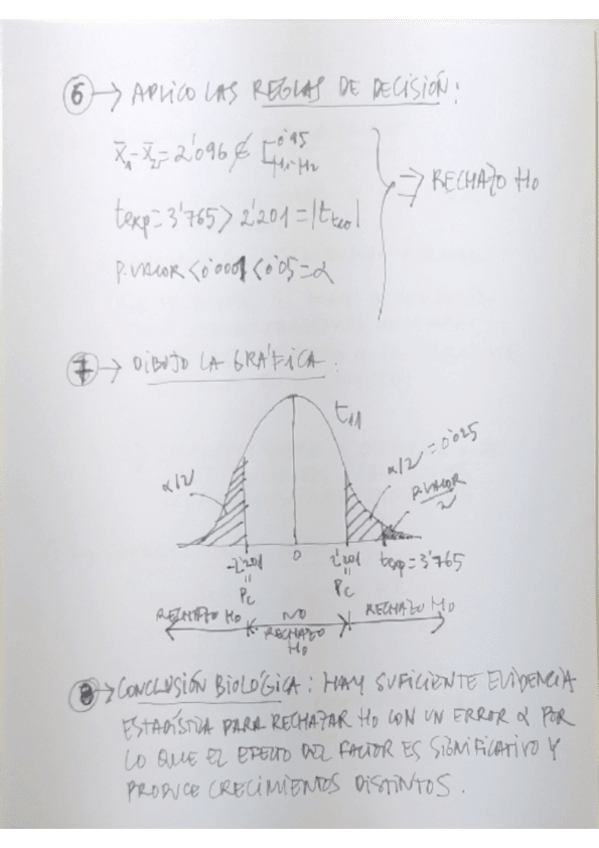 6 → APLICO LAS REGLAS DE DECISIÓN:
x̄₁-x̄₂=2'096 ∉ I^0'95_μ₁-μ₂
t_exp=3'765 > 2'201=|t_teo|
P.VALOR<0'0001<0'05=α
⇒ RECHAZO H0
7 → DIBUJO LA GRÁFICA:
t11
α/2
α/2 = 0'025
P.VALOR/2
-2'201 0 2'201 t_exp=3'765
= =
Pc Pc
RECHAZO H0 NO RECHAZO H0 RECHAZO H0
8 → CONCLUSIÓN BIOLÓGICA: HAY SUFICIENTE EVIDENCIA
ESTADÍSTICA PARA RECHAZAR H0 CON UN ERROR α POR
LO QUE EL EFECTO DEL FACTOR ES SIGNIFICATIVO Y
PRODUCE CRECIMIENTOS DISTINTOS.